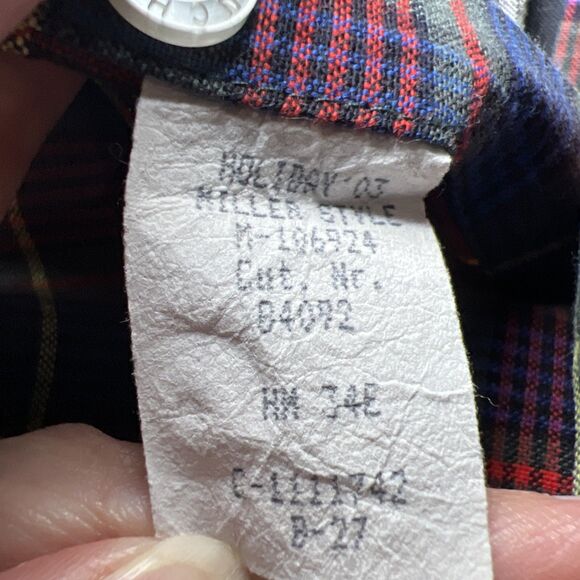 HOLIDAY 03
MILLER STYLE
M-106924
Cut. Nr.
84092
HM 34E
C-1111742
B-27